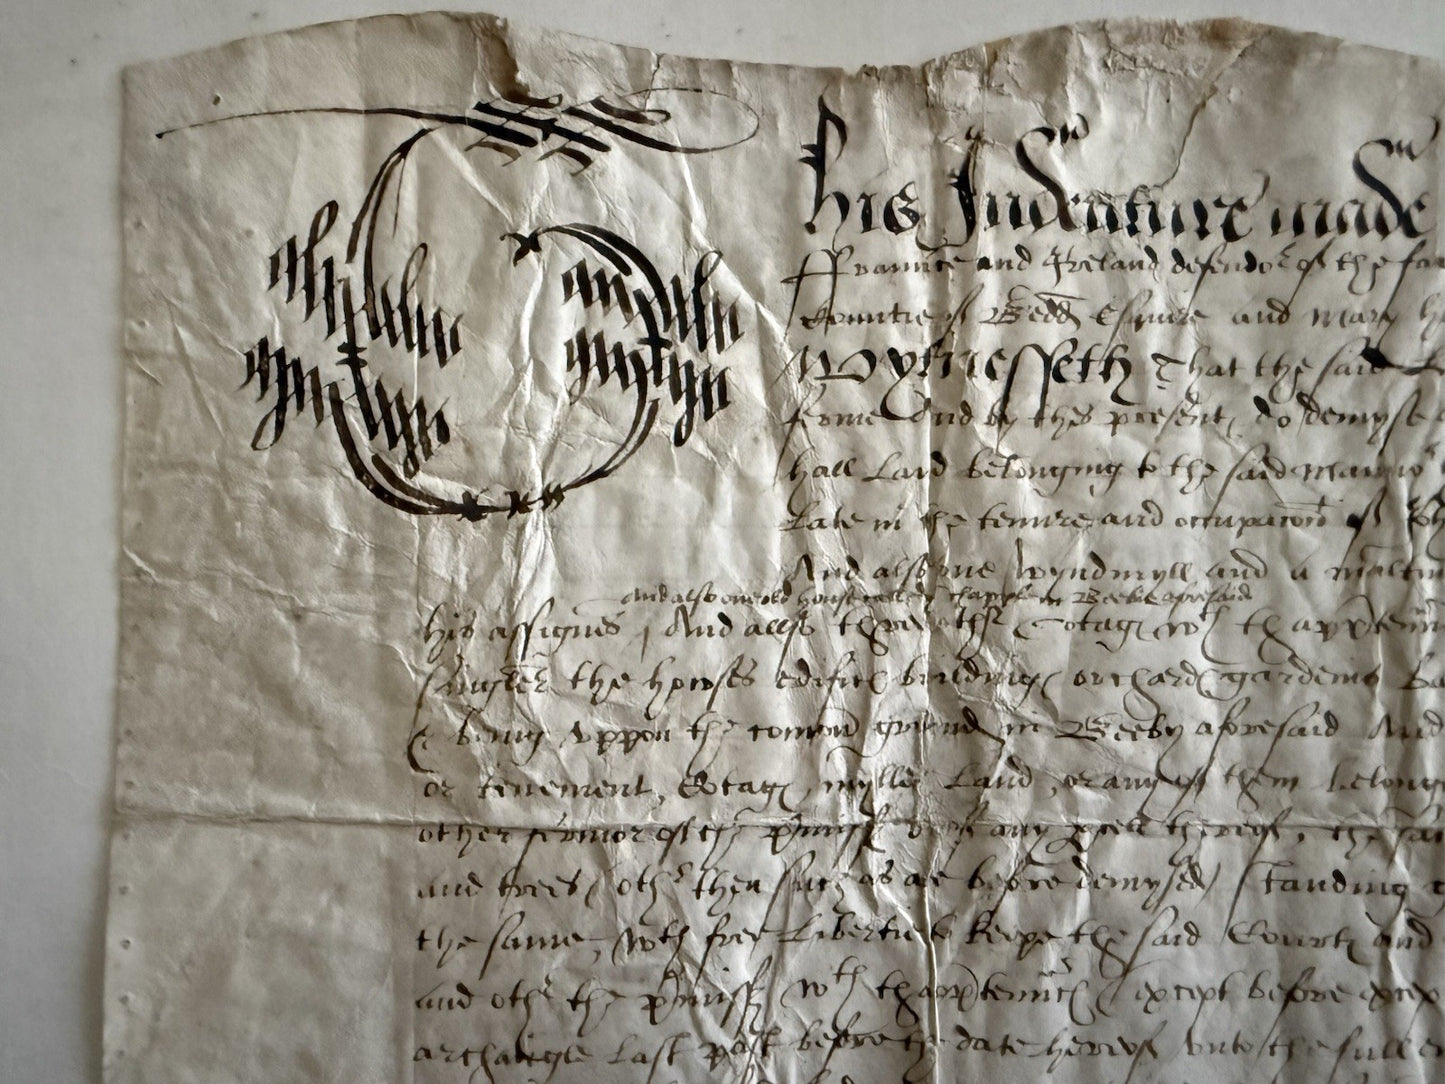 This Indenture made
Fraunce and Ireland defendor of the fai
Countie of Bedd Esquire and Mary h
Wytnesseth That the said L
ferme And by thes present do demyse
hall Land belonging to the said Mannor
Late in the tenure and occupacon of
And also one wyndmyll and a maltin
And also one old house called chappell in Beebie aforesaid
his assignes, And allso three other Cotag wth thapptenn
singler the howses edific buildings orchard gardeins Ba
being uppon the comon ground in Beeby aforesaid And
or tenement, Cotag, mylles Land, or any of them belong
other fermor of the pmiss or of any pcell thereof, the sai
and trees other then such as are before demysed Standing
the same, wth free Libertie to keepe the said Courts and
and other the pmiss wth thapptennc except before excep
archangle Last past before the date hereof unto the full e